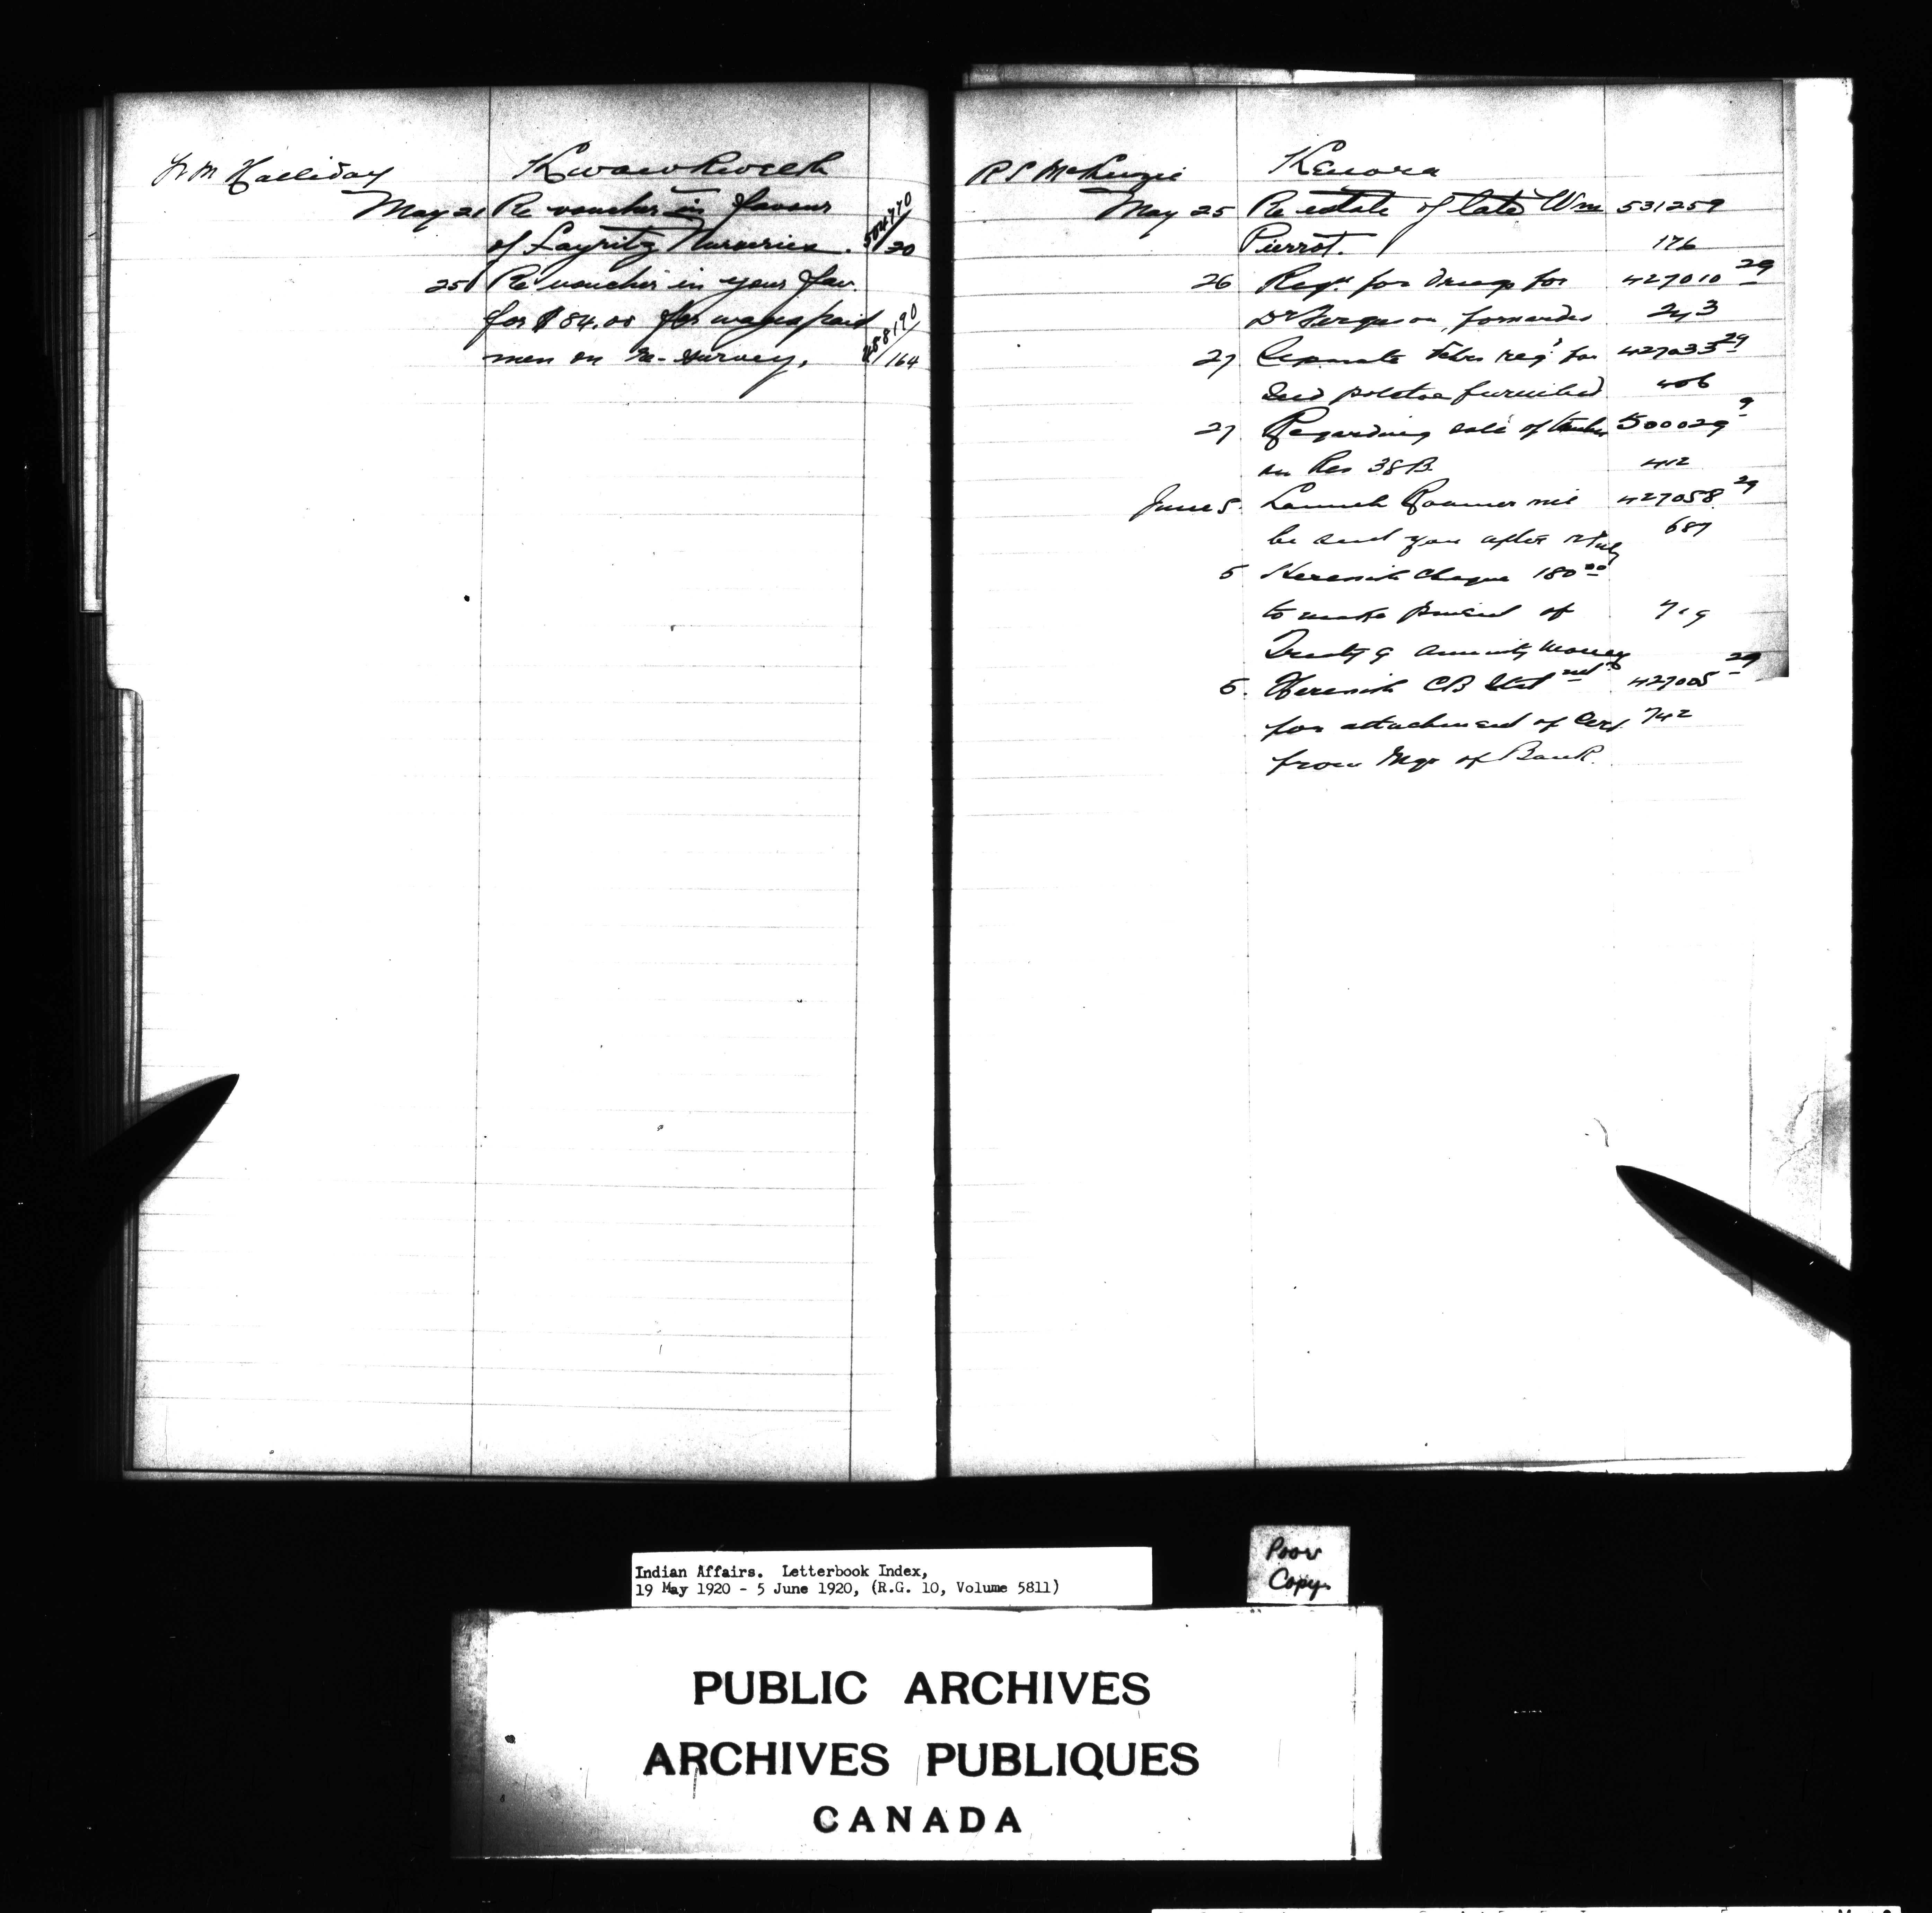 W M Halliday Kwawkwelth
May 21 Re voucher in favour 504770/
of Layritz Nurseries. 20
25 Re voucher in your fav.
for $84.00 for wages paid 58190/
men on re-survey, 164
R S McKenzie Kenora
May 25 Re estate of late Wm 531259
Pierrot. 176
26 Reqn for drugs for 427010 29
Dr Ferguson, forwarded 243
27 Separate reqn for 427033 29
seed potatoe furnished 406
27 Regarding sale of timber 500029 9
on Res 38B. 412
June 5. Launch Roamer will 427058 29
be sent you after 687
5 Herewith Cheque 180 00
to make of 719
Treaty & annuity Money
5. Herewith CB Stat 427005 29
for attachment of Cert 742
from Mgr of Bank.
Indian Affairs. Letterbook Index,
19 May 1920 - 5 June 1920, (R.G. 10, Volume 5811)
Poor
Copy.
PUBLIC ARCHIVES
ARCHIVES PUBLIQUES
CANADA